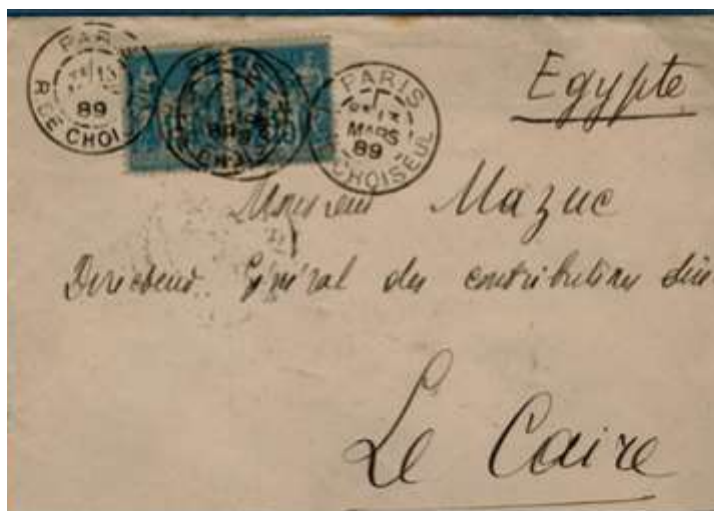 PARIS
R DE CHOI
89
PARIS
MARS
89
CHOISEUL
Egypte
Monsieur Mazuc
Directeur Général des contributions
Le Caire